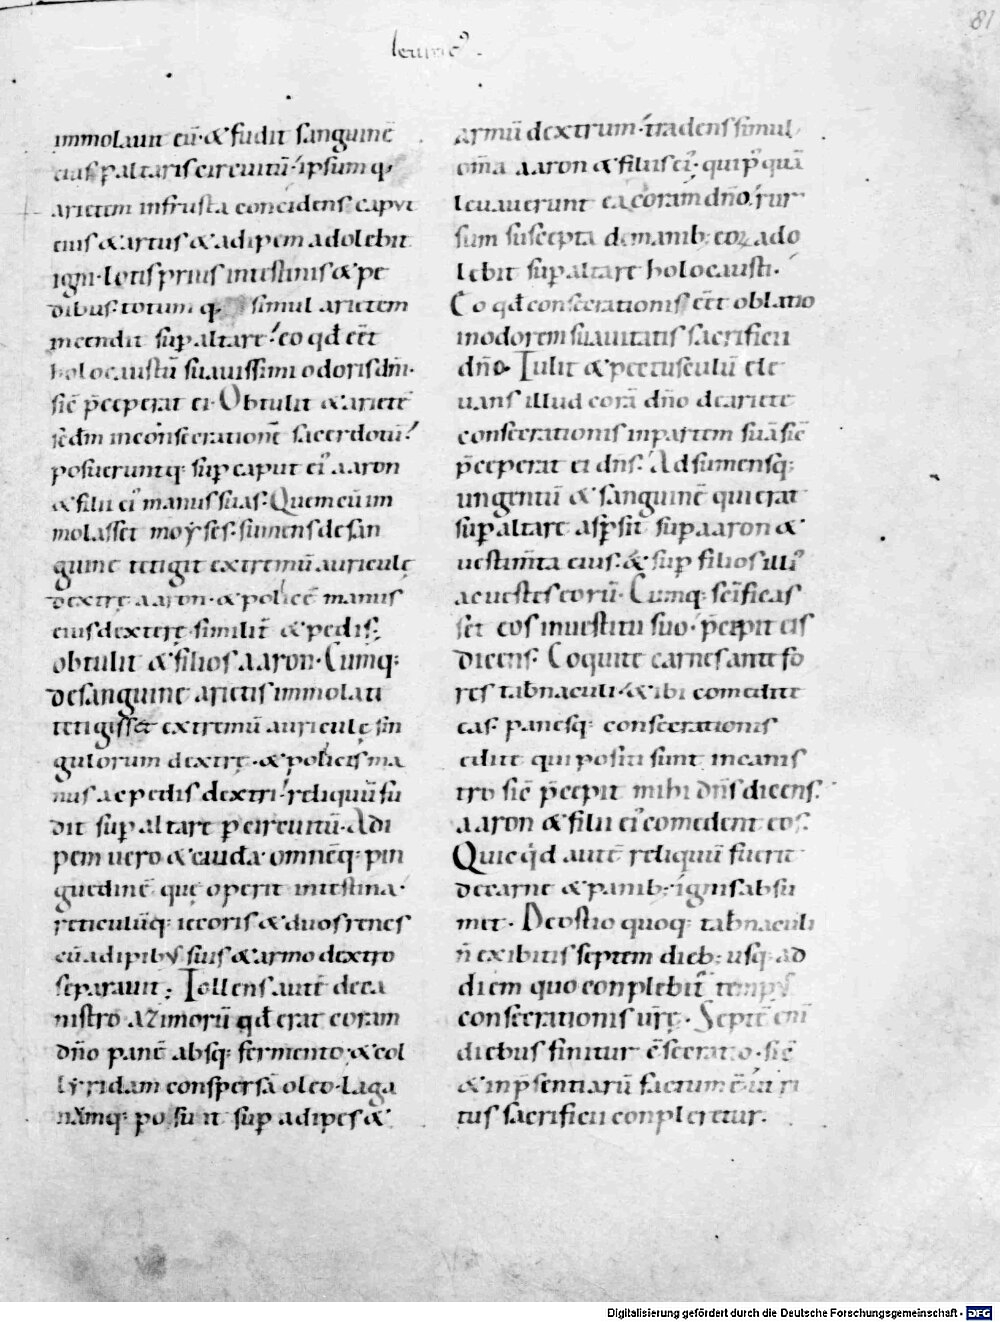 81
leuitic᾽
immolauit eū· & fudit sanguinē
eius p altaris circuitū· ipsum q;
arietem infrusta concidens caput
eius & artus & adipem adolebit
igni· Lotis prius intestinis & pe
dibus: totum q; simul arietem
incendit sup altare· eo qđ eēt
holocaustū suauissimi odoris dñi·
sic̄ p̄ceperat ei· Obtulit & arietē
scđm inconsecrationē sacerdotū·
posueruntq; sup caput ei᾽ aaron
& filii ei᾽ manus suas· Quem cū im
molasset moyses· sumens de san
guine tetigit extremū auriculę
dextrę aaron· & policē manus
eius dexterę· similit̄ & pedis;
obtulit & filios aaron· Cumq;
de sanguine arietis immolati
tetigisset extremū auriculę sin
gulorum dextrę· & policis ma
nus ac pedis dextri· reliquū fu
dit sup altare p circuitū· Adi
pem uero & cauda· omnēq; pin
guedinē quę operit intestina·
reticulūq; iecoris & duos renes
cū adipibus suis & armo dextro
separauit; Tollens autē de ca
nistro azimorū qđ erat coram
dño panē absq; fermento· & col
lyridam conspersā oleo· Laga
namq; posuit sup adipes &
armū dextrum· tradens simul
om̄a aaron & filiis ei᾽· qui p᾽quā
leuauerunt ea coram dño· rur
sum suscepta de manib; eoꝝ ado
lebit sup altare holocausti·
Eo qđ consecrationis eēt oblatio
inodorem suauitatis sacrificii
dño· Tulit & pectusculū ele
uans illud corā dño de ariete
consecrationis in partem suā sic̄
p̄ceperat ei dñs· Adsumensq;
ungentū & sanguinē qui erat
sup altare aspsit sup aaron &
uestim̄ta eius· & sup filios illi᾽
ac uestes eorū· Cumq; sc̄ificas
set eos in uestitu suo· p̄cepit eis
dicens· Coquite carnes ante fo
res tab̄naculi· & ibi comedite
eas· panesq; consecrationis
edite qui positi sunt in canis
tro sic̄ p̄cepit mihi dñs dicens·
aaron & filii ei᾽ comedent eos·
Quicq̇d autē reliquū fuerit
de carne & panib; ignis absu
met· De ostio quoq; tab̄naculi
n̄ exibitis septem dieb; usq; ad
diem quo conplebit᾽ tempus
consecrationis ur̄ę· Septē enī
diebus finitur c̄secratio· sic̄
& inp̄sentiarū factum ē· ut ri
tus sacrificii conpleretur.
Digitalisierung gefördert durch die Deutsche Forschungsgemeinschaft - DFG